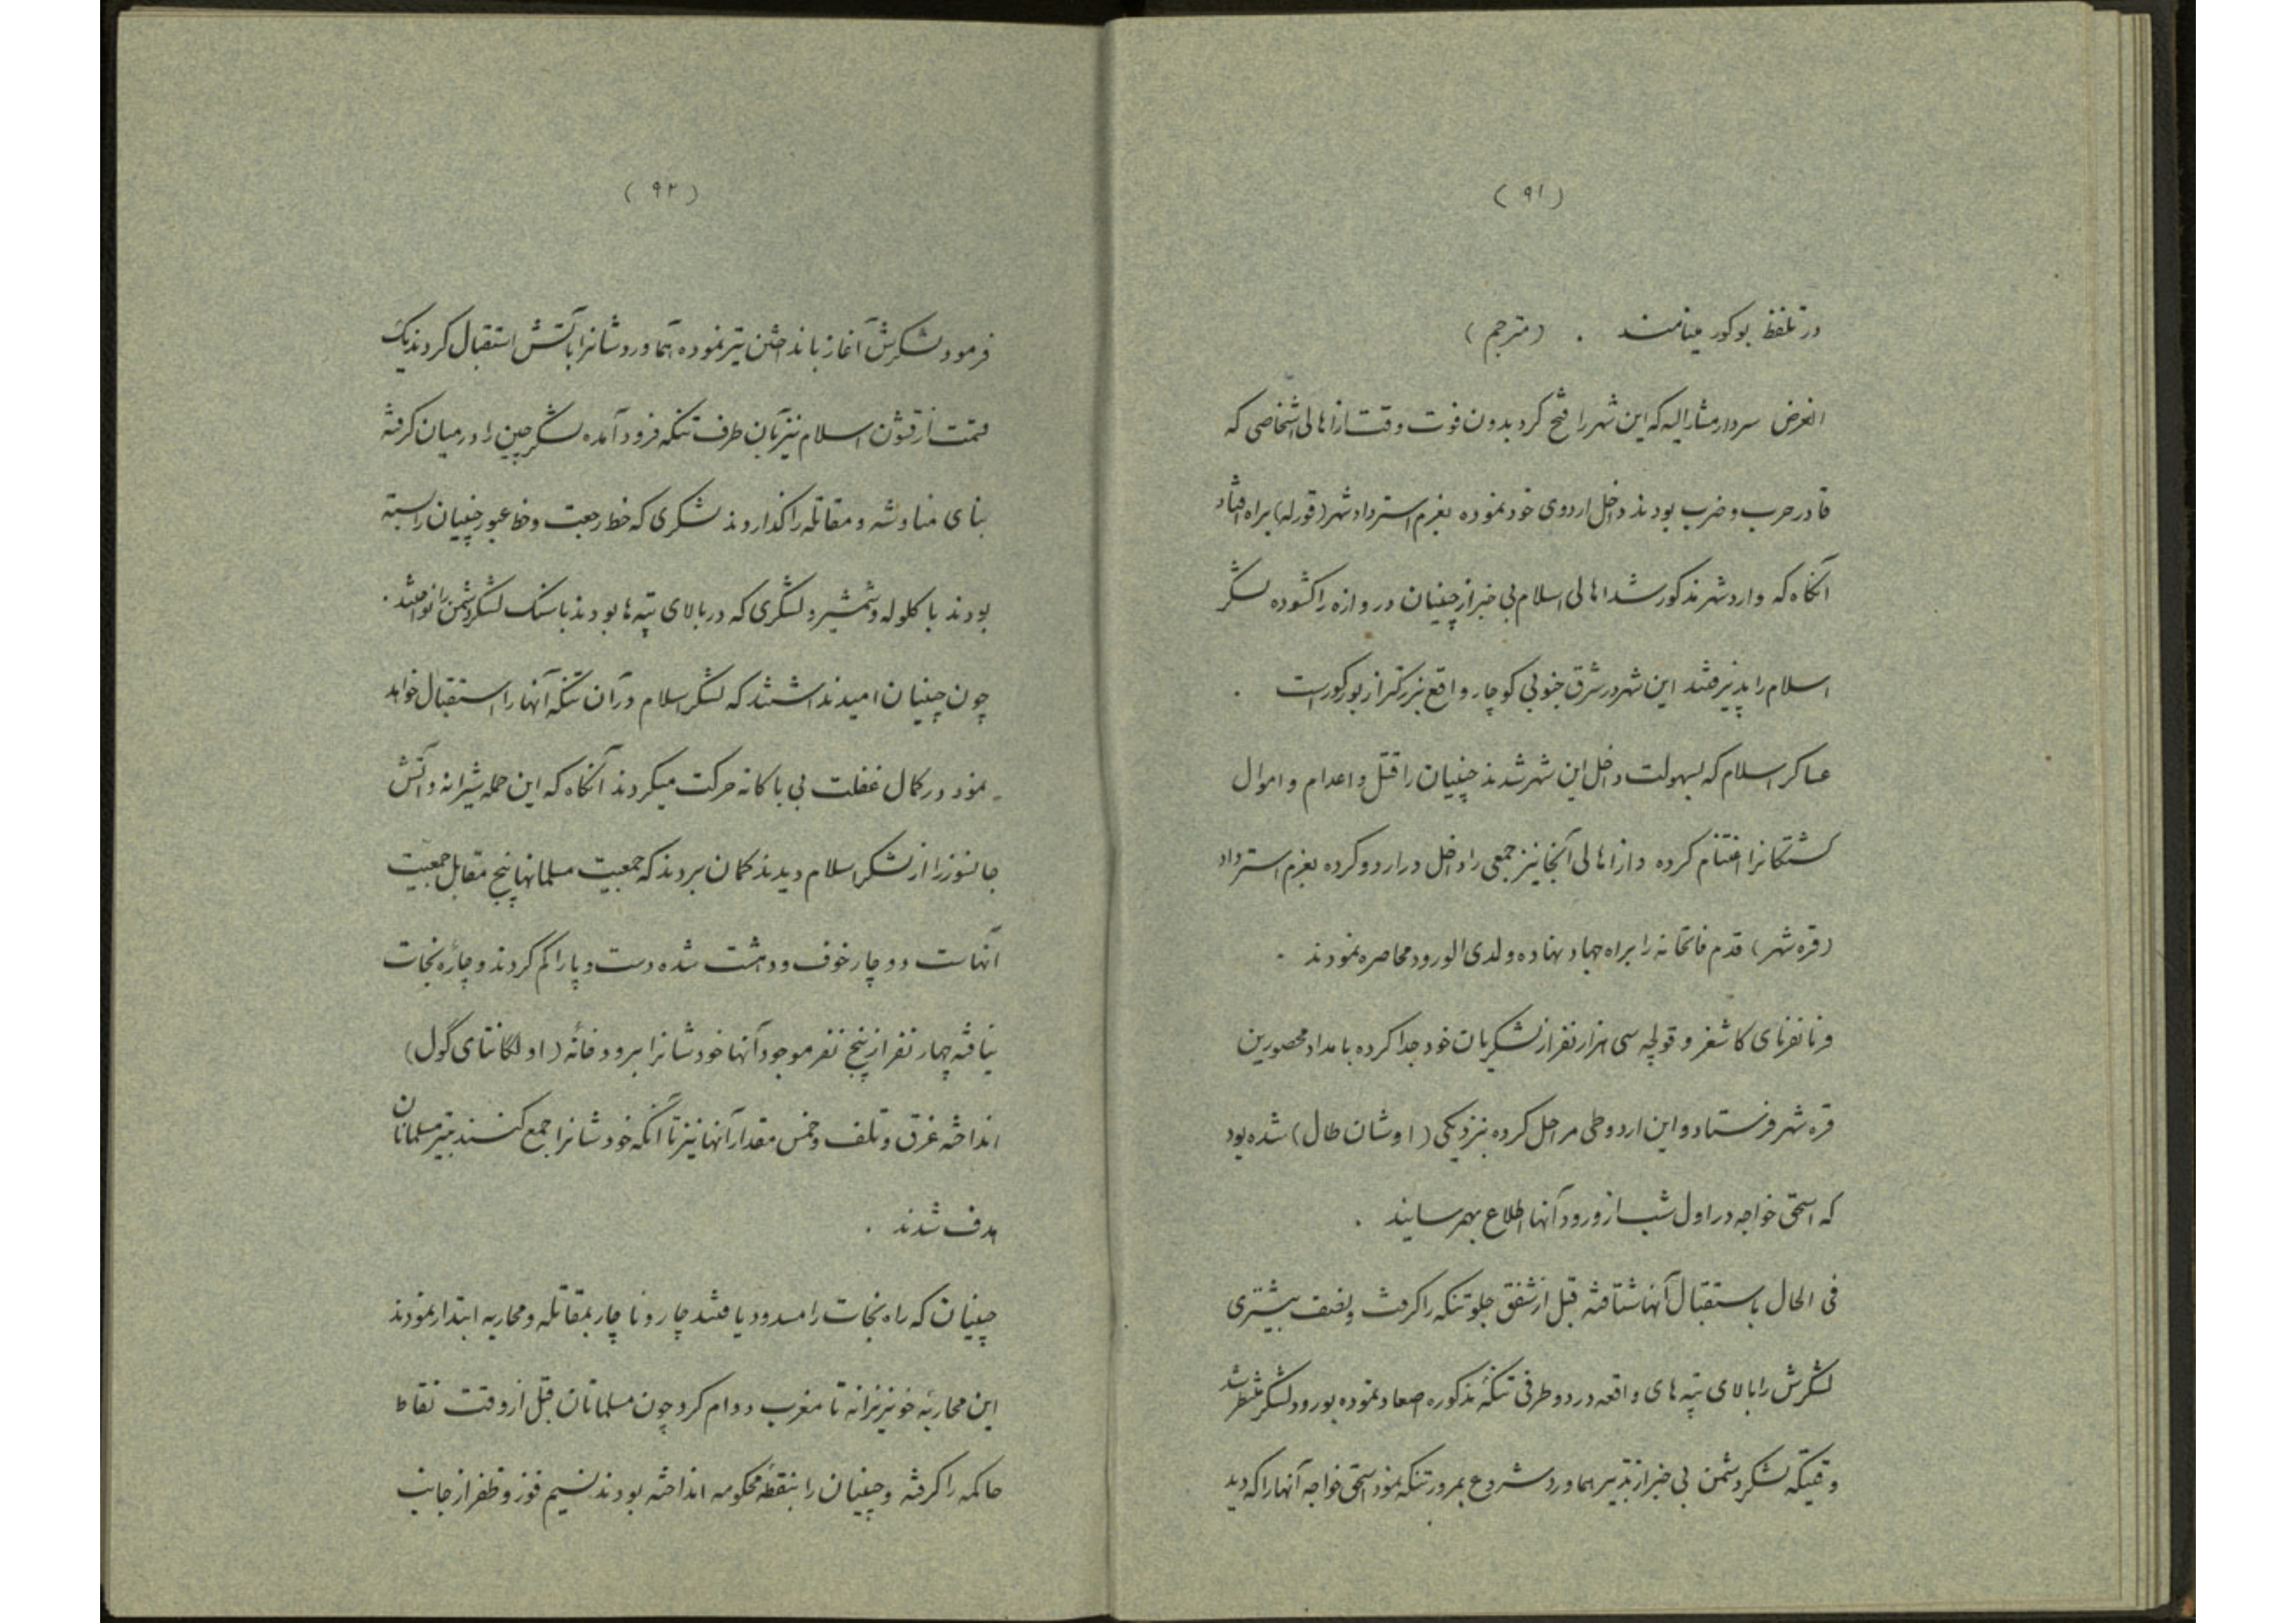 (۹۱)
در تلفظ بوکور مینامند . (مترجم)
الغرض سردار مشارالیه که این شهر را فتح کرد بدون فوت وقت از اهالی اشخاصی که
قادر حرب و ضرب بودند داخل اردوی خود نموده بعزم استرداد شهر (قورله) براه افتاد
آنگاه که وارد شهر مذکور شد اهالی اسلام بی خبر از چینیان دروازه را کشوده لشکر
اسلام را پذیرفتند این شهر در شرق جنوبی کوچار واقع بزرکتر از بورکور است .
عساکر اسلام که بسهولت داخل این شهر شدند چینیان را قتل و اعدام و اموال
کشتکانرا اغتنام کرده و از اهالی آنجا نیز جمعی را داخل در اردو کرده بعزم استرداد
(قره شهر) قدم فاتحانه را براه جهاد نهاده و لدی الورود محاصره نمودند .
فرمانفرمای کاشغر و قولچه سی هزار نفر از لشکریان خود جدا کرده بامداد محصورین
قره شهر فرستاد و این اردو طی مراحل کرده بنزدیکی (اوشان طال) شده بود
که اسحق خواجه در اول شب از ورود آنها اطلاع بهمرسانید .
فی الحال باستقبال آنها شتافته قبل از شفق جلو تنکه را کرفت و نصف بیشتری
لشکرش را بالای تپه های واقعه در دو طرفی تنکهٔ مذکوره اصعاد نموده بورود لشکر منتظر شد
وقتیکه لشکر دشمن بی خبر از تدبیر هماورد شروع بمرور تنکه نمود اسحق خواجه آنها را که دید
(۹۲)
فرمود لشکرش آغاز بانداختن تیر نموده هماوردشانرا بآتش استقبال کردند یک
قسمت از قشون اسلام نیز بآن طرف تنکه فرود آمده لشکر چین را در میان کرفته
بنای مناوشه و مقاتله را کذاردند لشکری که خط رجعت و خط عبور چینیان را بسته
بودند با کلوله و شمشیر و لشکری که در بالای تپه ها بودند با سنک لشکر دشمن را
چون چینیان امید نداشتند که لشکر اسلام در آن تنکه آنها را استقبال خواهد
نمود در کمال غفلت بی باکانه حرکت میکردند آنکاه که این حمله شیرانه و آتش
جانسوز را از لشکر اسلام دیدند کمان بردند که جمعیت مسلمانها پنج مقابل جمعیت
آنهاست دوچار خوف و دهشت شده دست و پا را کم کردند و چارهٔ نجات
نیافته چهار نفر از پنج نفر موجود آنها خودشانرا برودخانه (اولکانتای گول)
انداخته غرق و تلف و خمس مقدار آنها نیز تا آنکه خودشانرا جمع کنند بتیر مسلمانان
هدف شدند .
چینیان که راه نجات را مسدود یافتند چار و ناچار بمقاتله و محاربه ابتدار نمودند
این محاربهٔ خونریزانه تا مغرب دوام کرد چون مسلمانان قبل از وقت نقاط
حاکمه را کرفته و چینیان را بنقطهٔ محکومه انداخته بودند نسیم فوز و ظفر از جانب